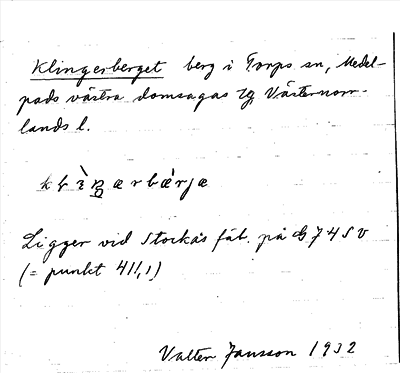 Klingerberget berg i Torps sn, Medel-
pads västra domsagas tg Västernorr-
lands l.
Ligger vid Stockås fäb. på G 74 SV
(= punkt 411,1)
Valter Jansson 1932